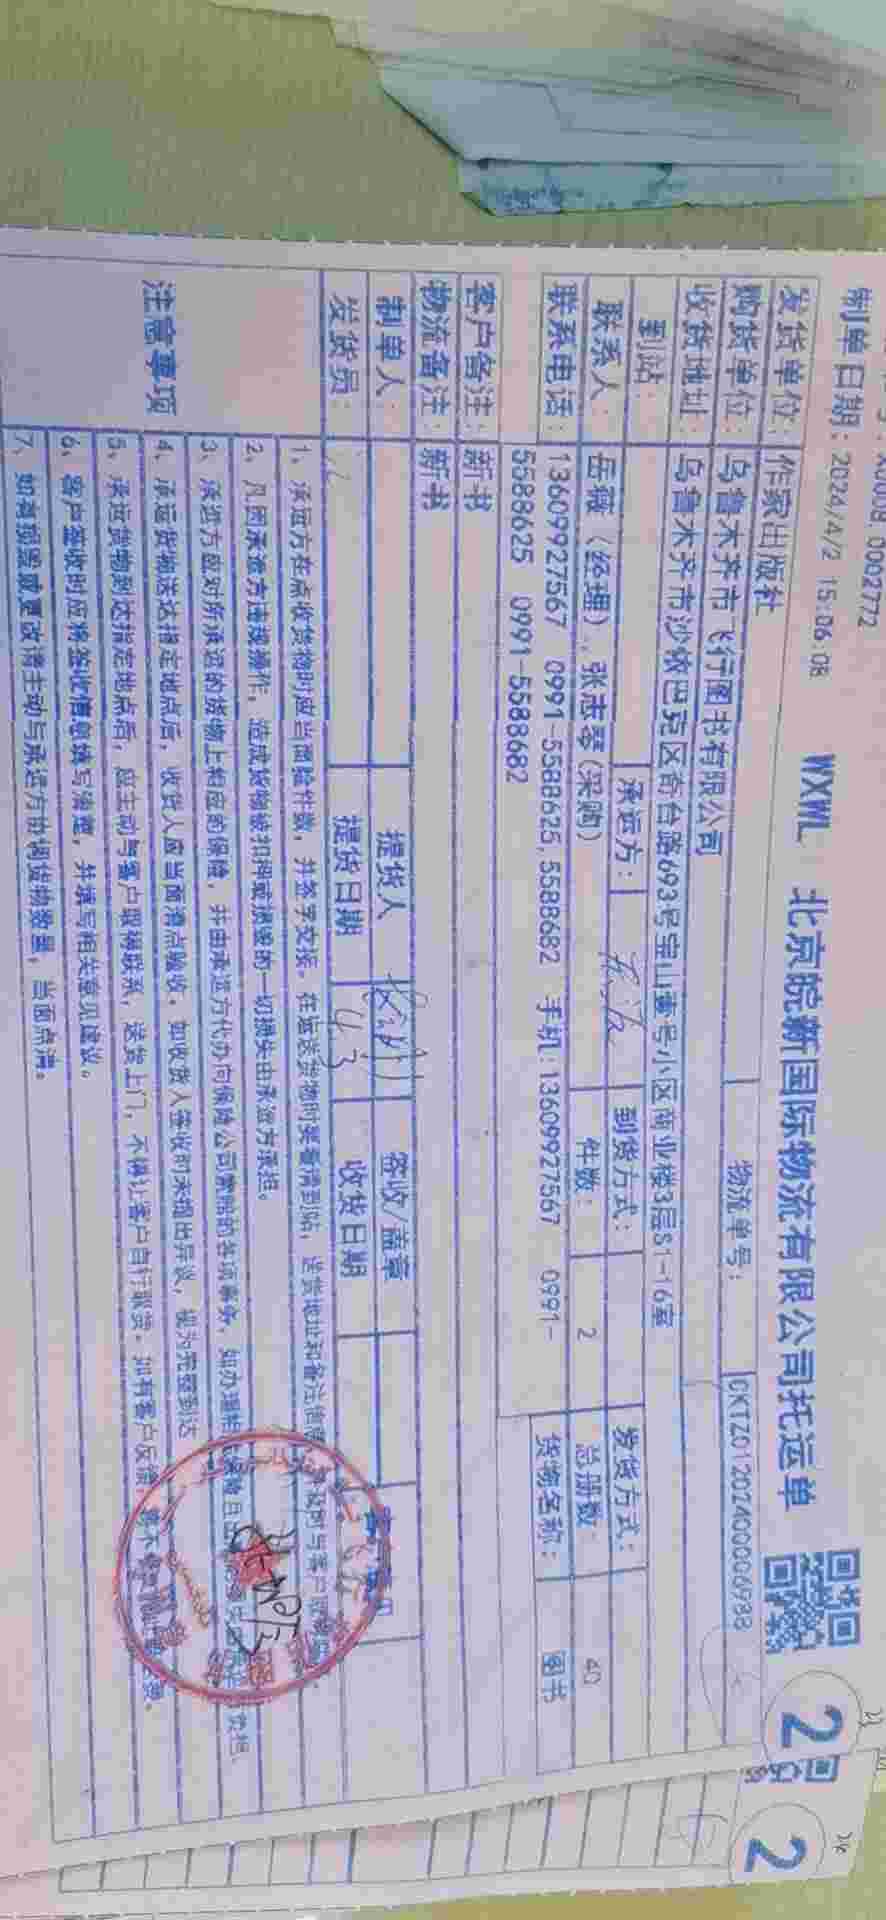 X0008.0002772
制单日期: 2024/4/2 15:06:08
WXWL 北京皖新国际物流有限公司托运单
2
发货单位: 作家出版社
物流单号: CKTZ01202400006988
购货单位: 乌鲁木齐市飞行图书有限公司
收货地址: 乌鲁木齐市沙依巴克区奇台路693号宝山壹号小区商业楼3层S1-16室
到站: 承运方: 到货方式: 发货方式:
联系人: 岳薇(经理), 张志琴(采购) 件数: 2 总册数: 40
联系电话: 13609927567 0991-5588625,5588682 手机:13609927567 0991-
5588625 0991-5588682
货物名称: 图书
客户备注: 新书
物流备注: 新书
制单人: 提货人 签收/盖章
发货员: 提货日期 4.3 收货日期
注意事项
1、承运方在点收货物时应当面验件数, 并签字交接。在运送货物时要看清到站, 送货地址和备注信息, 与客户
2、凡因承运方违规操作, 造成货物被扣押或损毁的一切损失由承运方承担。
3、承运方应对所承运的货物上相应的保险, 并由承运方代办向保险公司索赔的各项事务, 如办理相 负担。
4、承运货物送达指定地点后, 收货人应当面清点验收, 如收货人签收时未提出异议, 视为完整到达
5、承运货物到达指定地点后, 应主动与客户取得联系, 送货上门, 不得让客户自行取货。如有客户反馈,
6、客户签收时应将签收信息填写清楚, 并填写相关意见建议。
7、如有损毁或更改请主动与承运方协调货物数量, 当面点清。
2